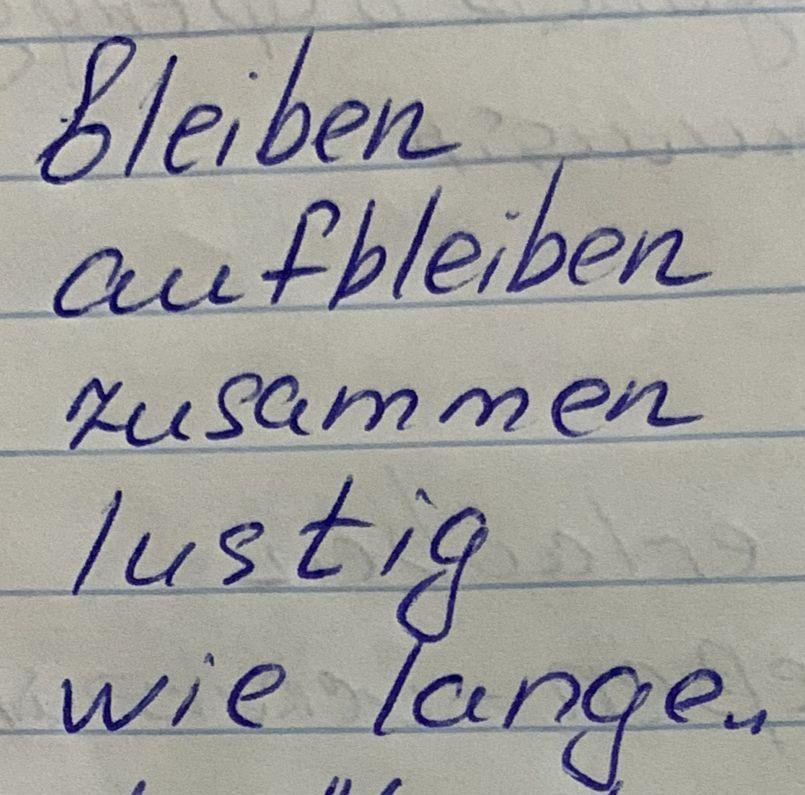 bleiben
aufbleiben
zusammen
lustig
wie lange